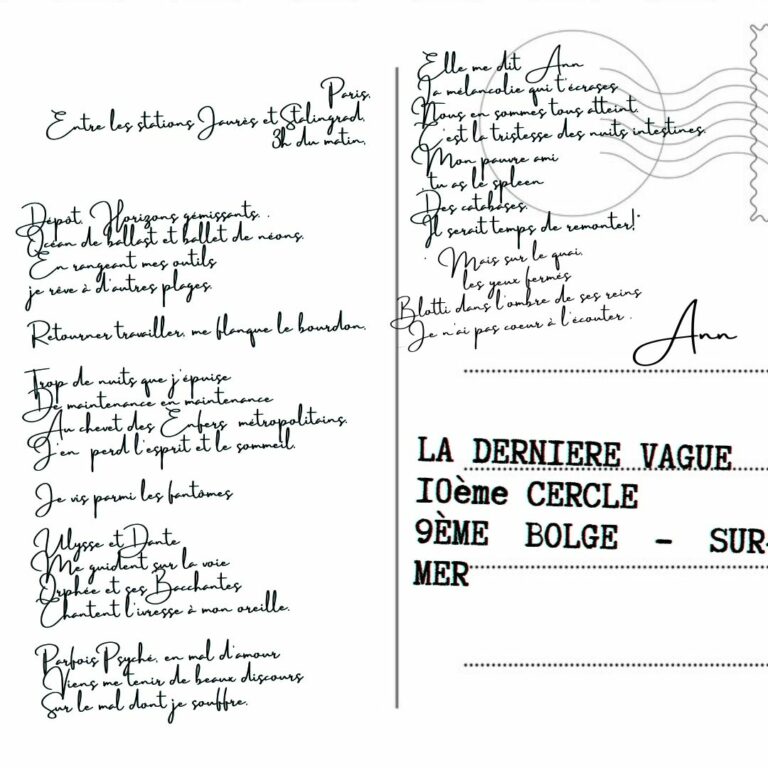 Paris,
Entre les stations Jaurès et Stalingrad,
3h du matin,
Dépôt. Horizons gémissants..
Océan de ballast et ballet de néons.
En rangeant mes outils
je rêve à d'autres plages.
Retourner travailler, me flanque le bourdon,
Trop de nuits que j'épuise
De maintenance en maintenance
Au chevet des Enfers métropolitains.
J'en perd l'esprit et le sommeil.
Je vis parmi les fantômes
Ulysse et Dante
Me guident sur la voie
Orphée et ses Bacchantes
Chantent l'ivresse à mon oreille.
Parfois Psyché, en mal d'amour
Viens me tenir de beaux discours
Sur le mal dont je souffre.
Elle me dit Ann
La mélancolie qui t'écrases
Nous en sommes tous atteint.
C'est la tristesse des nuits intestines.
Mon pauvre ami
tu as le spleen
Des catabases.
Il serait temps de remonter!"
Mais sur le quai,
les yeux fermés
Blotti dans l'ombre de ses reins
Je n'ai pas coeur à l'écouter.
Ann
LA DERNIERE VAGUE
10ème CERCLE
9ÈME BOLGE - SUR-
MER